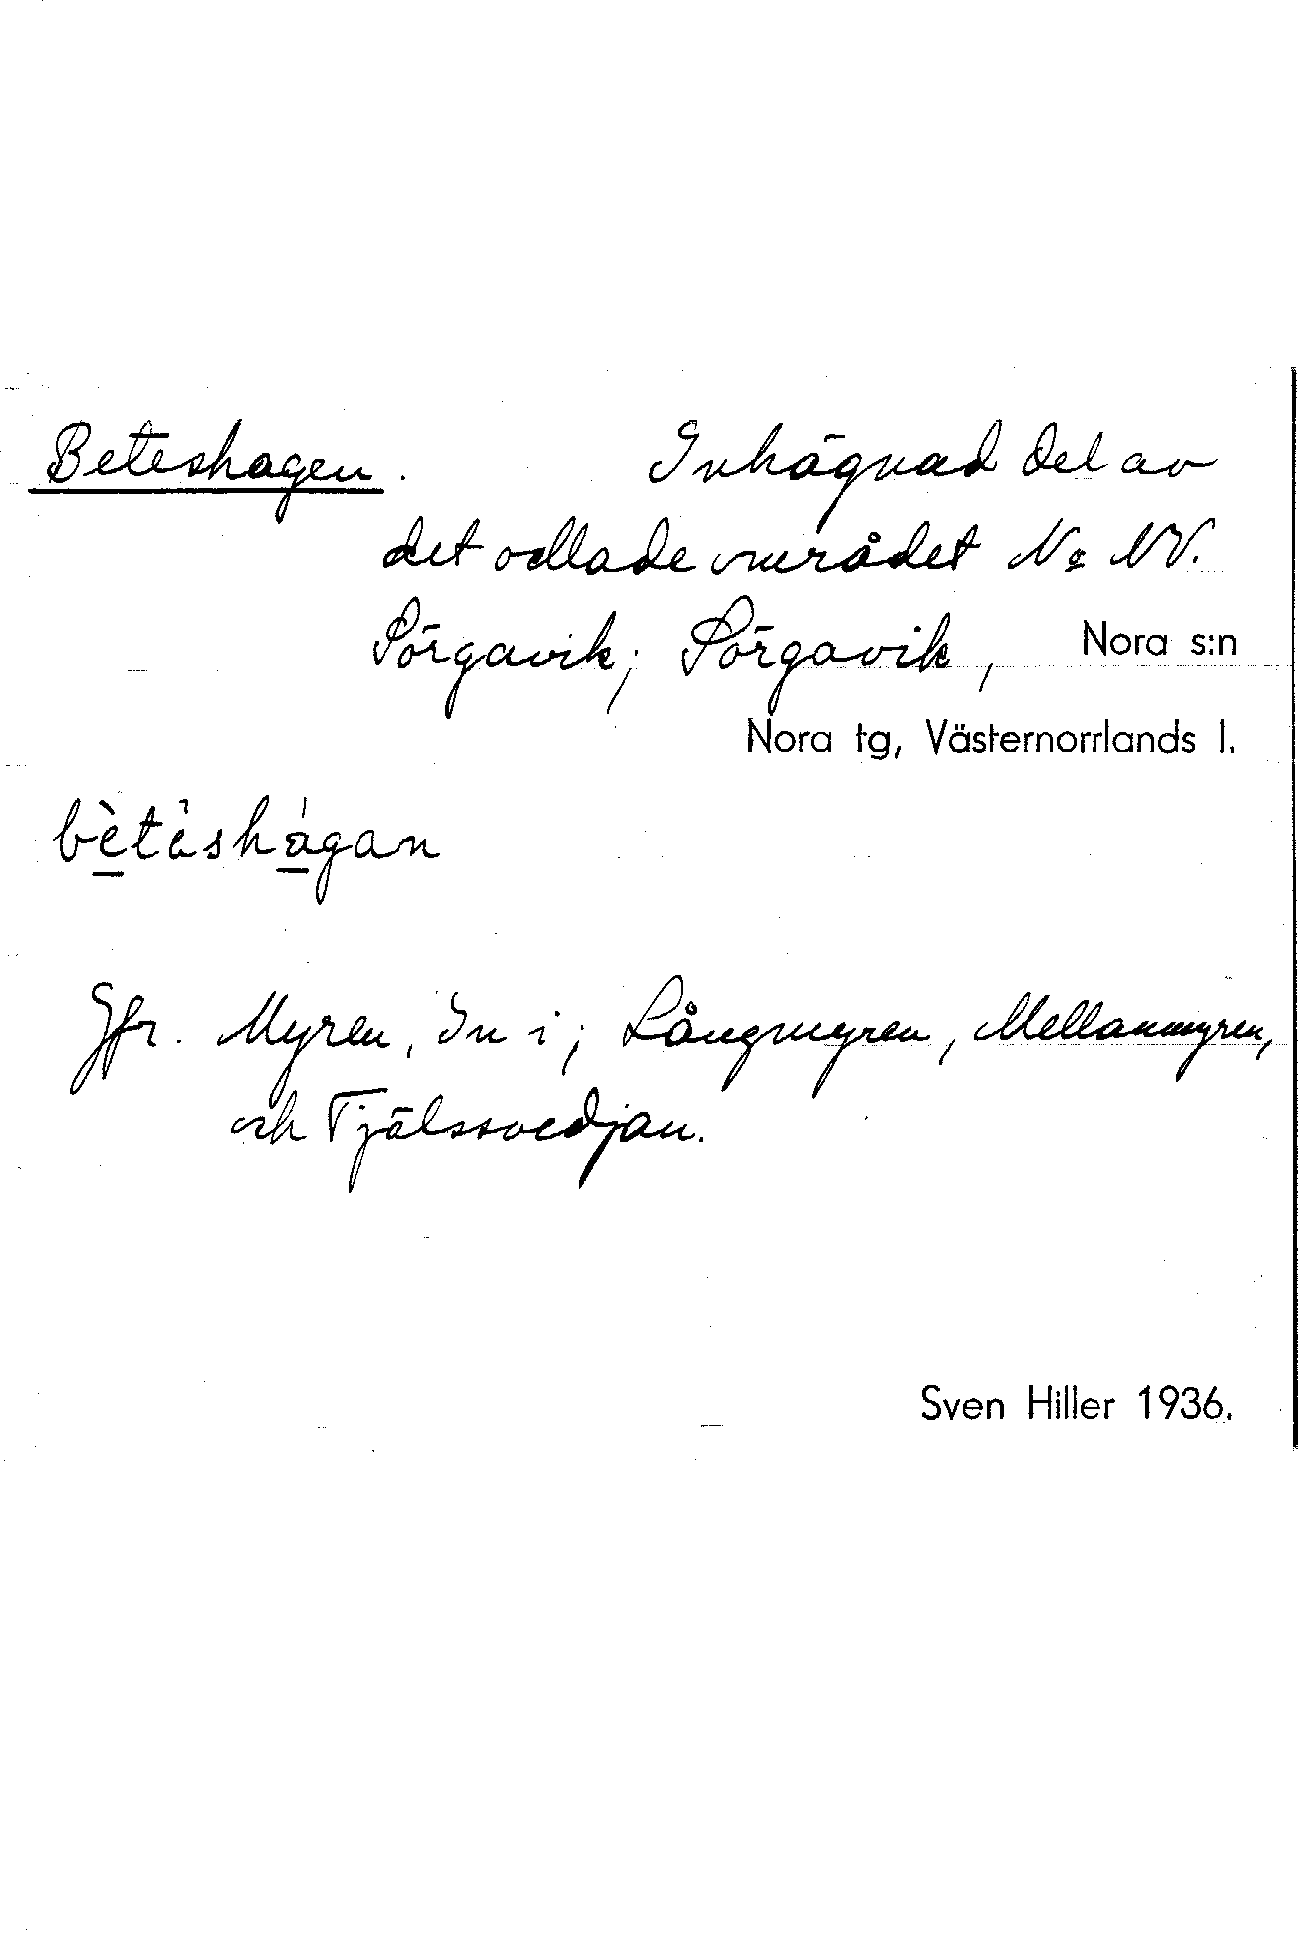 Beteshagen. Inhägnad del av
det odlade området N o NV.
Sörgavik; Sörgavik, Nora s:n
Nora tg, Västernorrlands l.
bètes̀hágan
Jfr. Myren, In i; Långmyren, Mellanmyren,
och Tjälssvedjan.
Sven Hiller 1936.